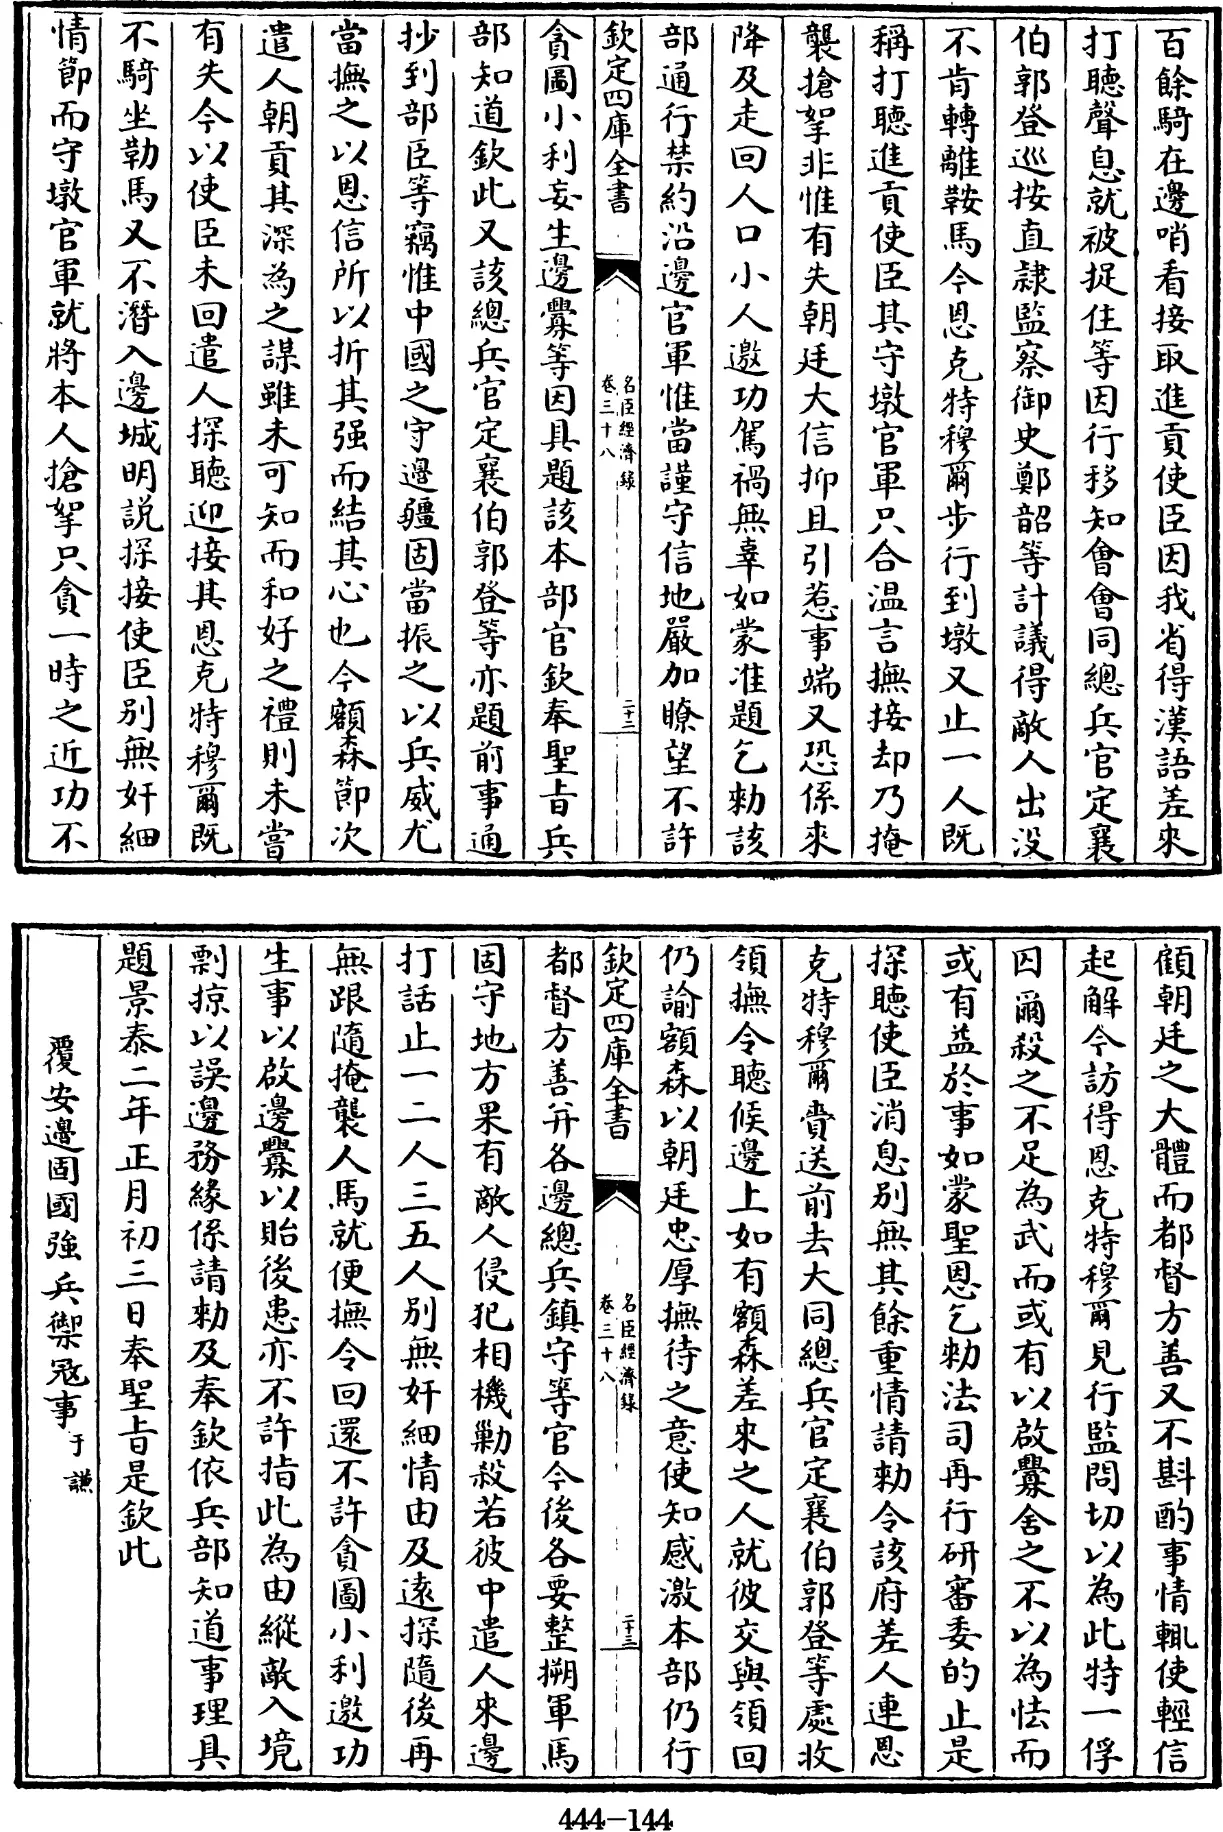 百餘騎在邊哨看接取進貢使臣因我省得漢語差來
打聽聲息就被捉住等因行移知會會同總兵官定襄
伯郭登巡按直隸監察御史鄭韶等計議得敵人出没
不肯轉離鞍馬今恩克特穆爾步行到墩又止一人既
稱打聽進貢使臣其守墩官軍只合温言撫接却乃掩
襲搶拏非惟有失朝廷大信抑且引惹事端又恐係來
降及走回人口小人邀功駕禍無辜如蒙准題乞勅該
部通行禁約沿邊官軍惟當謹守信地嚴加瞭望不許
欽定四庫全書
名臣經濟録
卷三十八
二十二
貪圖小利妄生邊釁等因具題該本部官欽奉聖旨兵
部知道欽此又該總兵官定襄伯郭登等亦題前事通
抄到部臣等竊惟中國之守邊疆固當振之以兵威尤
當撫之以恩信所以折其强而結其心也今額森節次
遣人朝貢其深為之謀雖未可知而和好之禮則未嘗
有失今以使臣未回遣人探聽迎接其恩克特穆爾既
不騎坐勒馬又不潛入邊城明説探接使臣别無奸細
情節而守墩官軍就將本人搶拏只貪一時之近功不
顧朝廷之大體而都督方善又不斟酌事情輒使輕信
起解今訪得恩克特穆爾見行監問切以為此特一俘
囚爾殺之不足為武而或有以啟釁舍之不以為怯而
或有益於事如蒙聖恩乞勅法司再行研審委的止是
探聽使臣消息别無其餘重情請勅令該府差人連恩
克特穆爾賫送前去大同總兵官定襄伯郭登等處收
領撫令聽候邊上如有額森差來之人就彼交與領回
仍諭額森以朝廷忠厚撫待之意使知感激本部仍行
欽定四庫全書
名臣經濟録
卷三十八
二十三
都督方善并各邊總兵鎮守等官今後各要整搠軍馬
固守地方果有敵人侵犯相機勦殺若彼中遣人來邊
打話止一二人三五人别無奸細情由及遠探隨後再
無跟隨掩襲人馬就便撫令回還不許貪圖小利邀功
生事以啟邊釁以貽後患亦不許指此為由縱敵入境
剽掠以誤邊務緣係請勅及奉欽依兵部知道事理具
題景泰二年正月初三日奉聖旨是欽此
覆安邊固國強兵禦冦事于謙
444-144